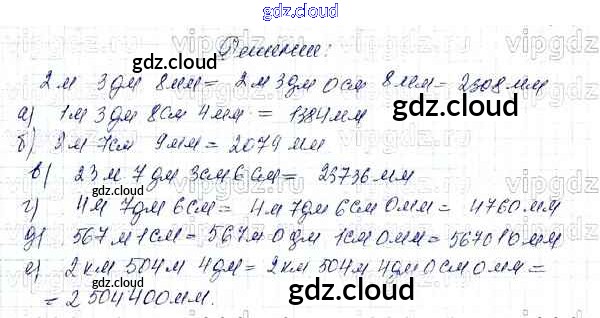 gdz.cloud
Решение:
gdz.cloud
2м 3дм 8мм = 2м 3дм 0см 8мм = 2308мм
а) 1м 3дм 8см 4мм = 1384мм
gdz.cloud
б) 2м 7см 9мм = 2079мм
в) 23м 7дм 3см 6см = 23736мм
gdz.cloud
г) 4м 7дм 6см = 4м 7дм 6см 0мм = 4760мм
д) 567м 1см = 567м 0дм 1см 0мм = 567010мм
gdz.cloud
е) 2км 504м 4дм = 2км 504м 4дм 0см 0мм =
= 2504400мм.
gdz.cloud